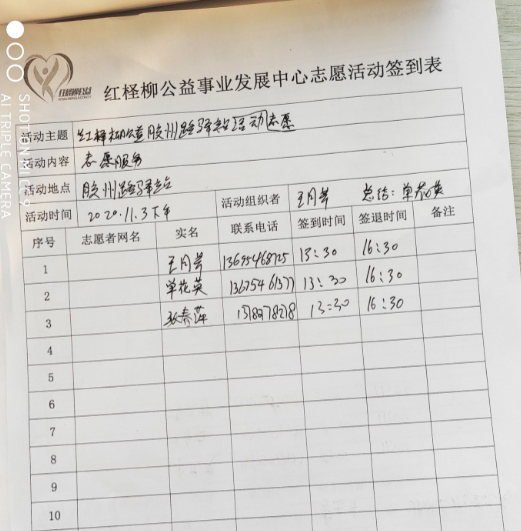 红柽柳公益事业发展中心志愿活动签到表
活动主题 红柽柳公益胶州路驿站活动志愿
活动内容 志愿服务
活动地点 胶州路驿站
活动时间 2020.11.3下午 活动组织者 王月芹 总结：单花英
序号 志愿者网名 实名 联系电话 签到时间 签退时间 备注
1 王月芹 13:30 16:30
2 单花英 13:30 16:30
3 张春萍 13:30 16:30
4
5
6
7
8
9
10
SHOT ON MI CC9
AI TRIPLE CAMERA